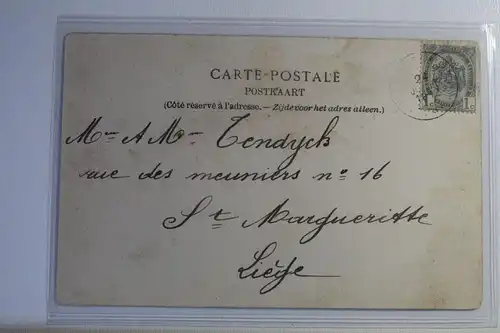 CARTE-POSTALE
POSTKAART
(Côté réservé à l'adresse.—Zijde voor het adres alleen.)
Mr A Me Tendyck
rue des meuniers no 16
St Margueritte
Liège
1 1